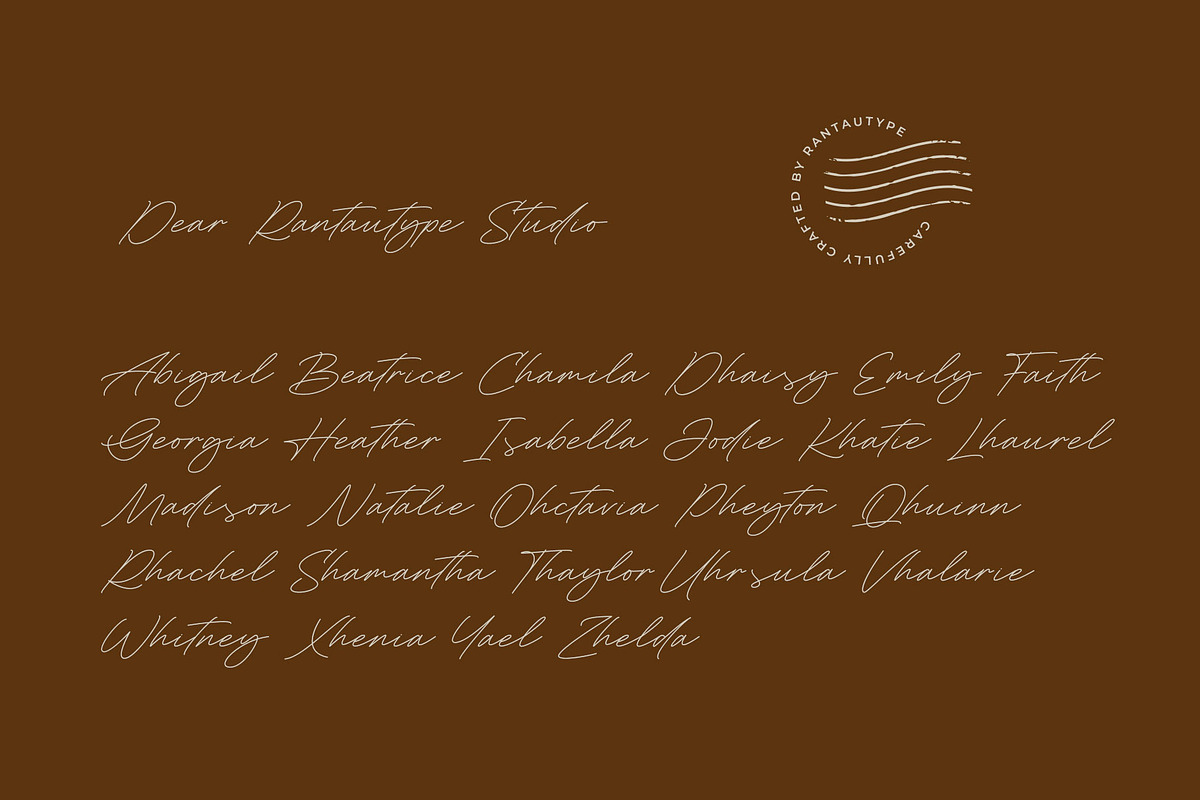 CAREFULLY CRAFTED BY RANTAUTYPE
Dear Rantautype Studio
Abigail Beatrice Chamila Dhaisy Emily Faith
Georgia Heather Isabella Jodie Khatie Lhaurel
Madison Natalie Ohctavia Pheyton Qhuinn
Rhachel Shamantha Thaylor Uhrsula Vhalarie
Whitney Xhenia Yael Zhelda